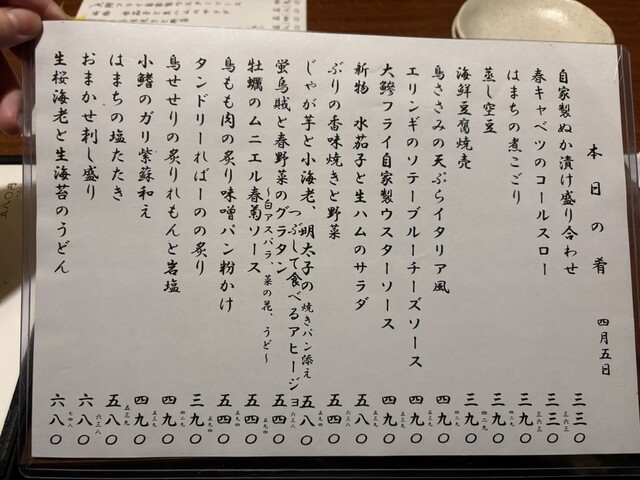 本日の肴　四月五日
自家製ぬか漬け盛り合わせ　三三〇　三六三
春キャベツのコールスロー　三三〇　三六三
はまちの煮こごり　三九〇　四二九
蒸し空豆　三九〇　四二九
海鮮豆腐焼売　三九〇　四二九
鳥ささみの天ぷらイタリア風　四九〇　五三九
エリンギのソテーブルーチーズソース　四九〇　五三九
大鯵フライ自家製ウスターソース　四九〇　五三九
新物　水茄子と生ハムのサラダ　五四〇　五九四
ぶりの香味焼きと野菜　五八〇　六三八
じゃが芋と小海老、明太子の
つぶして食べるアヒージョ　焼きパン添え　五八〇　六三八
蛍烏賊と春野菜のグラタン　五四〇　五九四
〜白アスパラ、菜の花、うど〜
牡蠣のムニエル春菊ソース　五四〇　五九四
鳥もも肉の炙り味噌パン粉かけ　五四〇　五九四
タンドリーればーのの炙り　三九〇　四二九
鳥せせりの炙りれもんと岩塩　四九〇　五三九
小鰭のガリ紫蘇和え　四九〇　五三九
はまちの塩たたき　五八〇　六三八
おまかせ刺し盛り　六八〇　七四八
生桜海老と生海苔のうどん　六八〇　七四八